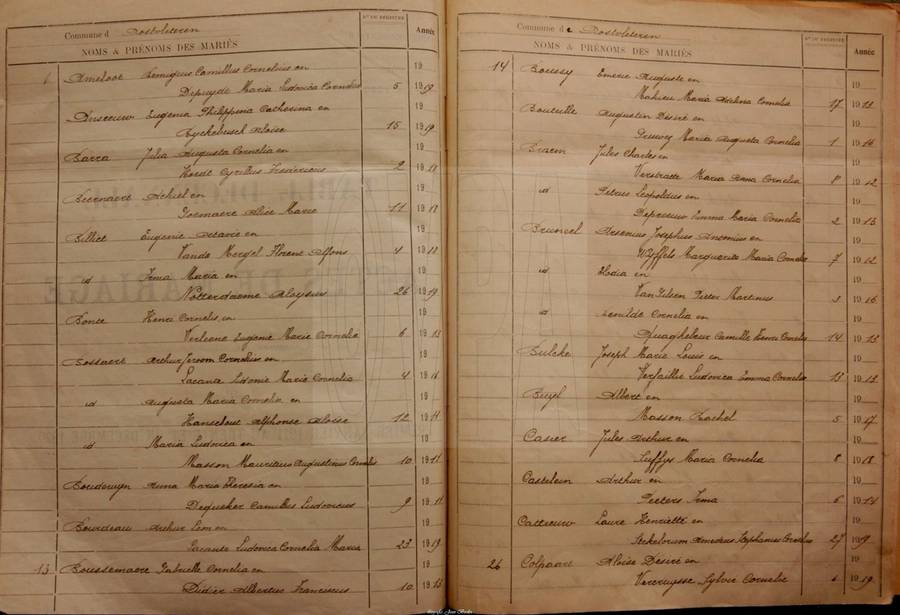 Commune d Oostvleteren
NOMS & PRÉNOMS DES MARIÉS
N° DU REGISTRE
Année
1 Ameloot Remigius Camillus Cornelius en 19
Depuydt Maria Ludovica Cornelia 5 1919
Eugenia Philippina Catherina en 19
Ryckebusch Aloise 15 1919
Barra Julia Augusta Cornelia en 19
Cyrillus Fredericus 2 1918
Beernaert Achiel en 19
Goemaere Alice Marie 11 1918
Billiet Eugenie Octavie en 19
Vande Florent Alfons 4 1918
id Irma Maria en 19
Notterdaeme Aloysius 26 1919
Bonte Henri Cornelis en 19
Verleene Eugenie Marie Cornelia 6 1913
Bossaert Arthur Jeroom Cornelius en 19
Lacante Sidonie Marie Cornelia 4 19
id Augusta Maria Cornelia en 19
Alphonse Aloise 12 1911
id Maria Ludovica en 19
Masson Mauritius Augustinus Cornelis 10 1911
Boudewyn Anna Maria Theresia en 19
Camillus Ludovicus 9 1911
Bourdeau Arthur Leon en 19
Lacante Ludovica Cornelia Maria 23 1919
13 Boussemaere Gabrielle Cornelia en 19
Didier Albertus Franciscus 10 1913
Commune de Oostvleteren
NOMS & PRÉNOMS DES MARIÉS
N° DU REGISTRE
Année
14 Boussy Emerie Auguste en 19
Mahieu Maria Cornelia 17 1913
Augustin Désiré en 19
Maria Augusta Cornelia 1 1914
Braem Jules Charles en 19
Verstraete Maria Anna Cornelia 8 1912
id Petrus Leopoldus en 19
Emma Maria Cornelia 2 1913
Bruneel Arsenius Josephus Antonius en 19
Wyffels Marguerite Maria Cornelia 7 1912
id Elodia en 19
Pieter Martinus 3 1916
id Cornelia en 19
Quaghebeur Camille Henri Cornelis 14 1913
Bulcke Joseph Marie Louis en 19
Verfaillie Ludovica Emma Cornelia 13 1912
Buyl Albert en 19
Masson Rachel 5 1917
Casier Jules Arthur en 19
Maria Cornelia 8 1918
Castelein Arthur en 19
Peeters Irma 6 1914
Laure Henriette en 19
Amedeus Stephanus Cornelius 27 1919
26 Colpaert Aloise Désiré en 19
Vercruysse Sylvie Cornelie 6 1919